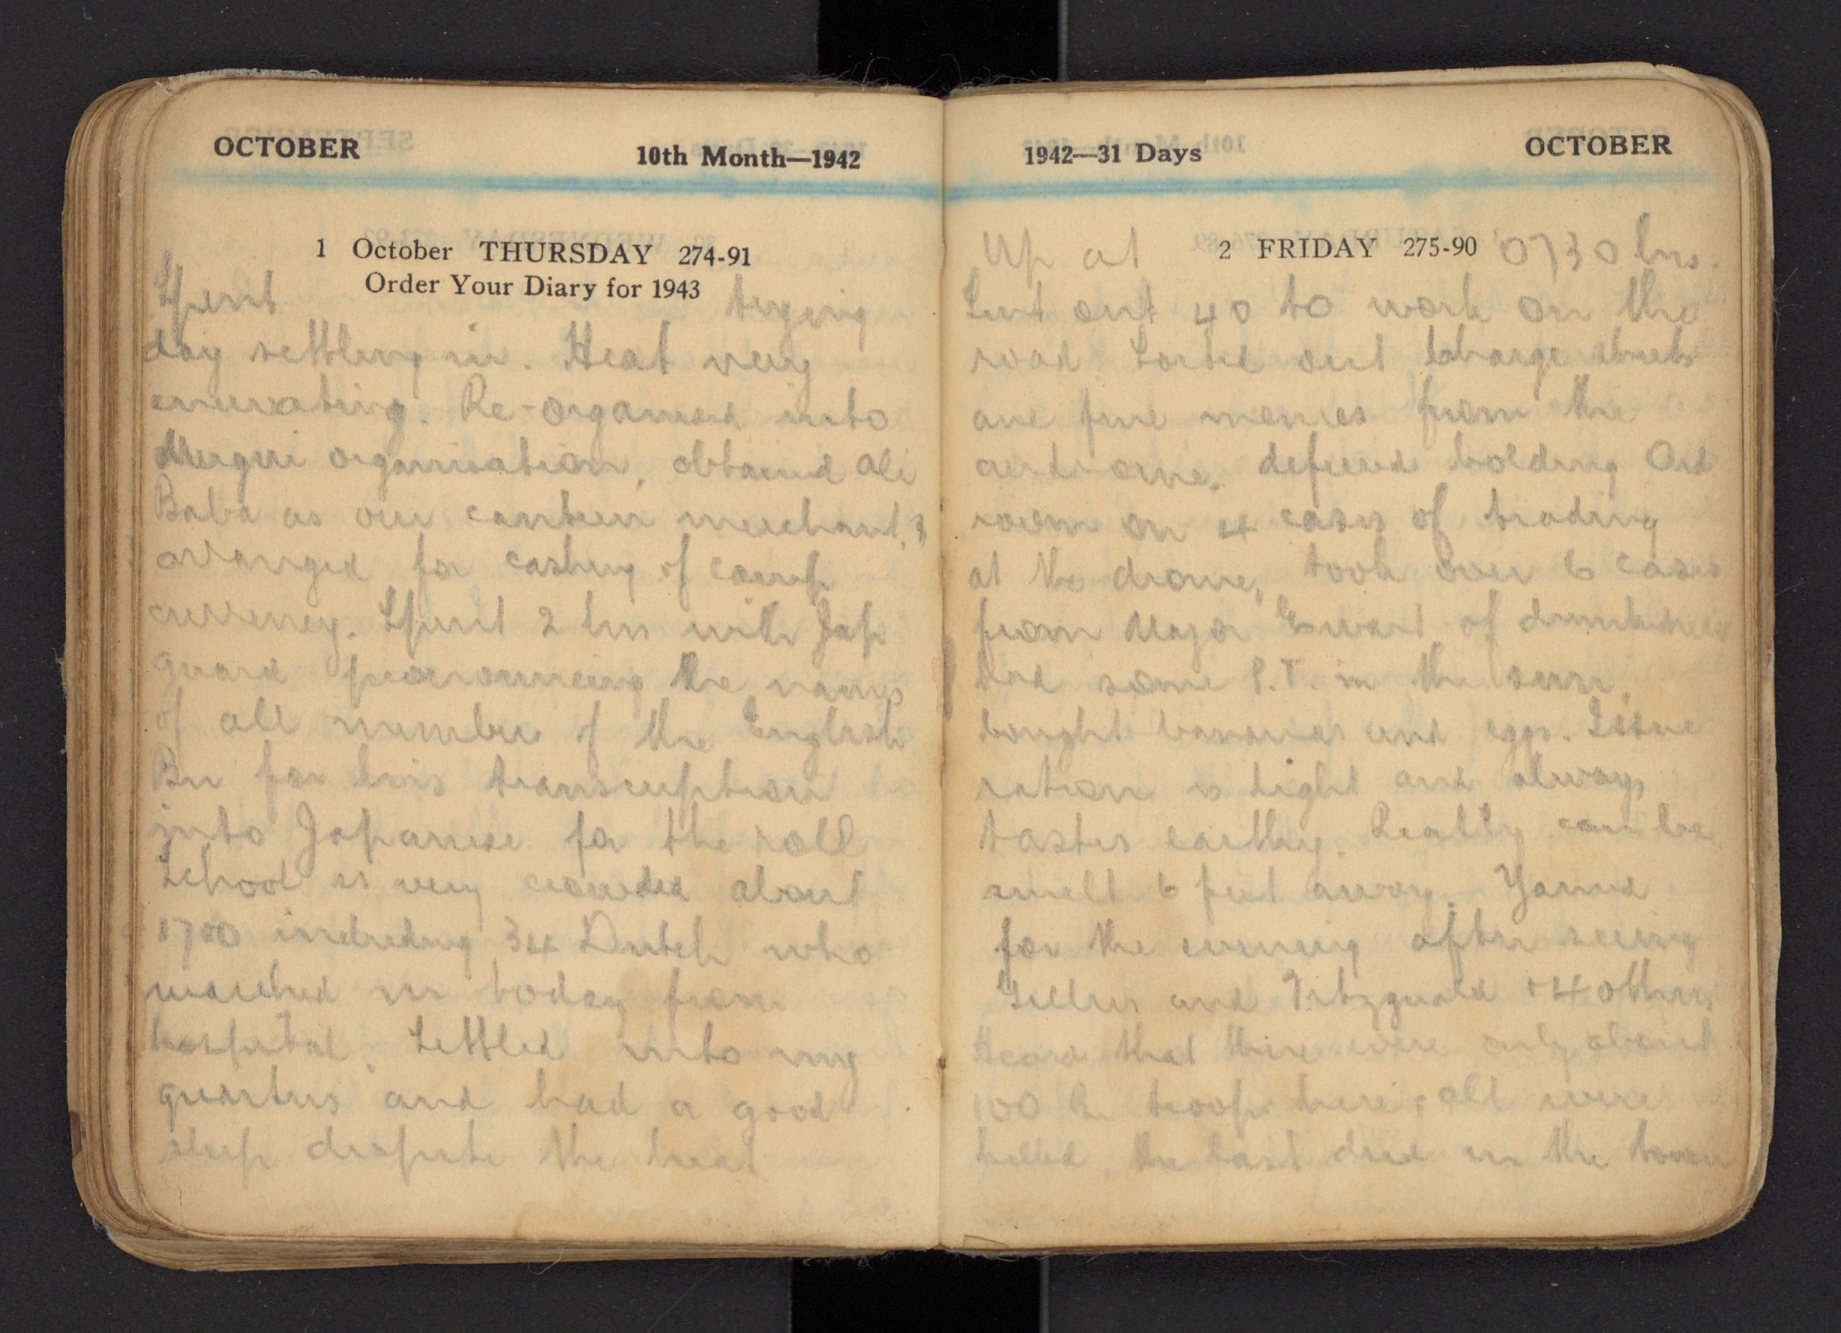 OCTOBER 10th Month—1942
1 October THURSDAY 274-91
Order Your Diary for 1943
Spent trying
day settling in. Heat very
enervating. Re-organised into
Mergui organisation, obtained Ali
Baba as our canteen merchant, &
arranged for cashing of camp
currency. Spent 2 hrs with Jap
guard pronouncing the names
of all members of the English
Bn for his transcription
into Japanese for the roll
School is very crowded about
1700 including 34 Dutch who
marched in today from
hospital. Settled into my
quarters and had a good
sleep despite the heat
1942—31 Days OCTOBER
2 FRIDAY 275-90
Up at 0730 hrs.
Sent out 40 to work on the
road. Sorted out charge sheets
and fine monies from the
aerodrome, deferred holding Ord
room on 4 cases of trading
at the drome, took over 6 cases
from Major Ewart of drunkenness
Had some P.T. in the sun,
bought bananas and eggs. Issue
ration is light and always
tastes earthy. Really can be
smelt 6 feet away. Yarned
for the evening after seeing
and Fitzgerald + 4 others
Heard that there were only about
100 Br troops here, all were
killed, the last died in the town